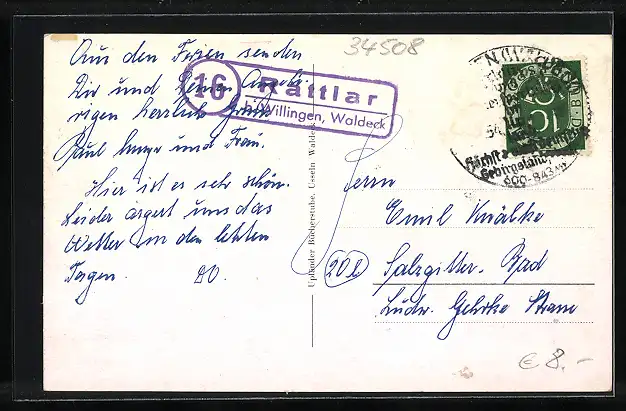 34508
Aus den Ferien senden
Dir und Deinen Angehö-
rigen herzliche Grüße
Paul und Frau.
Hier ist es sehr schön.
Leider ärgert uns das
Wetter in den letzten
Tagen. D.O.
16
Rattlar
ü. Willingen, Waldeck
Upländer Bücherstube, Usseln Waldeck
10
Höchst
Gebirgsland
600-843 m
Herrn
Emil Knälke
20b
Salzgitter-Bad
Ludw. Gehrke Strasse
€ 8.-